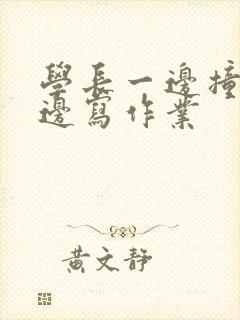 學長一邊撞
邊寫作業
黃文靜